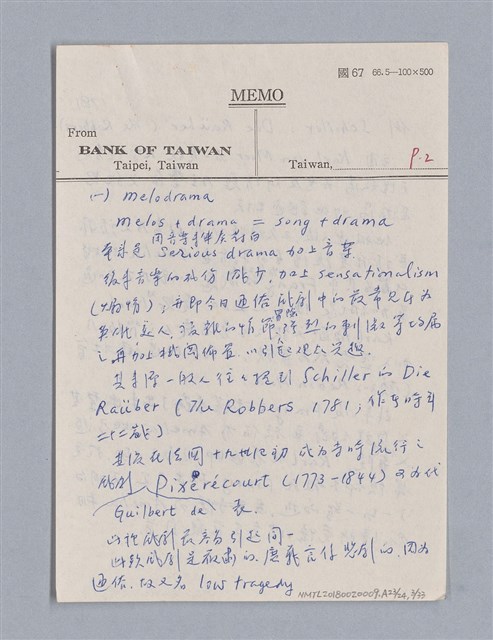 國 67 66.5—100×500
MEMO
From
BANK OF TAIWAN
Taipei, Taiwan
Taiwan,
P.2
(一) melodrama
melos + drama = song + drama
用音樂來伴奏對白
本來是 serious drama 加上音樂
後來音樂的成份減少，加上 sensationalism
(煽情)；即今日通俗戲劇中的最常見者為
美人，複雜的情節，冒險 強烈的刺激等均屬
之再加上機関佈置 以引起觀衆興趣．
其來源一般人往往提到 Schiller的 Die
Raüber (The Robbers 1781；作者時年
二十二歲)
其後在法國十九世紀初 成為當時流行之
戲劇 Pixérécourt (1773-1844) 為代
Guilbert de 表．
此種戲劇最易引起同一
此種戲劇是嚴肅的．悲劇的．因為
通俗，故又名 low tragedy
NMTL20180020009.A23/24, 3/33